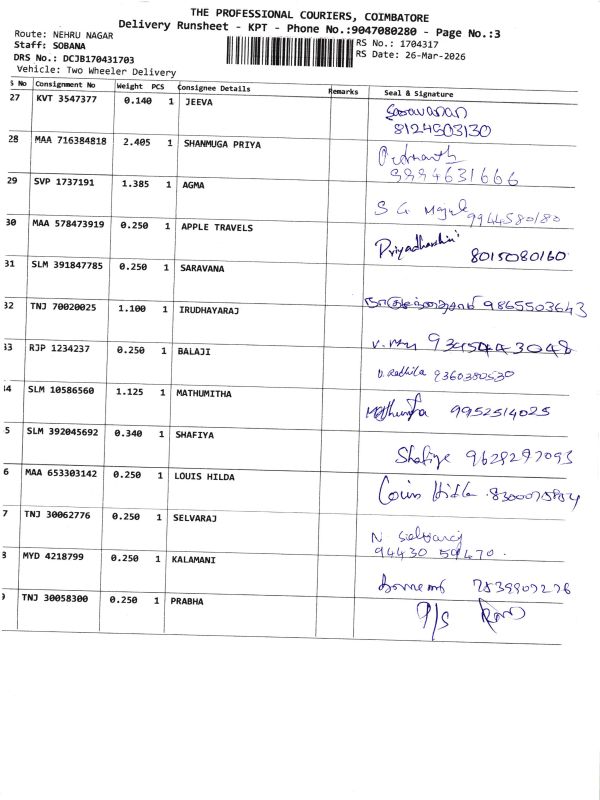 THE PROFESSIONAL COURIERS, COIMBATORE
Delivery Runsheet - KPT - Phone No.:9047080280 - Page No.:3
Route: NEHRU NAGAR
Staff: SOBANA
DRS No.: DCJB170431703
Vehicle: Two Wheeler Delivery
RS No.: 1704317
RS Date: 26-Mar-2026
S No Consignment No Weight PCS Consignee Details Remarks Seal & Signature
27 KVT 3547377 0.140 1 JEEVA Saravanan
8124503130
28 MAA 716384818 2.405 1 SHANMUGA PRIYA
9994631666
29 SVP 1737191 1.385 1 AGMA S G 9944580180
30 MAA 578473919 0.250 1 APPLE TRAVELS Priyadharshini 8015080160
31 SLM 391847785 0.250 1 SARAVANA
9865503643
32 TNJ 70020025 1.100 1 IRUDHAYARAJ
33 RJP 1234237 0.250 1 BALAJI
9360380530
34 SLM 10586560 1.125 1 MATHUMITHA Mathumitha 9952514025
5 SLM 392045692 0.340 1 SHAFIYA Shafiya 9629297093
6 MAA 653303142 0.250 1 LOUIS HILDA Louis Hilda
7 TNJ 30062776 0.250 1 SELVARAJ N Selvaraj
94430 59470.
8 MYD 4218799 0.250 1 KALAMANI
9 TNJ 30058300 0.250 1 PRABHA P/S